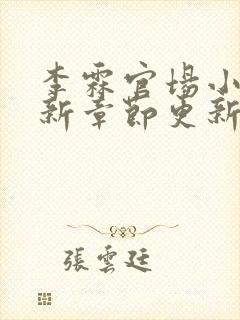 李霖官場小
新章節更新
張雲廷